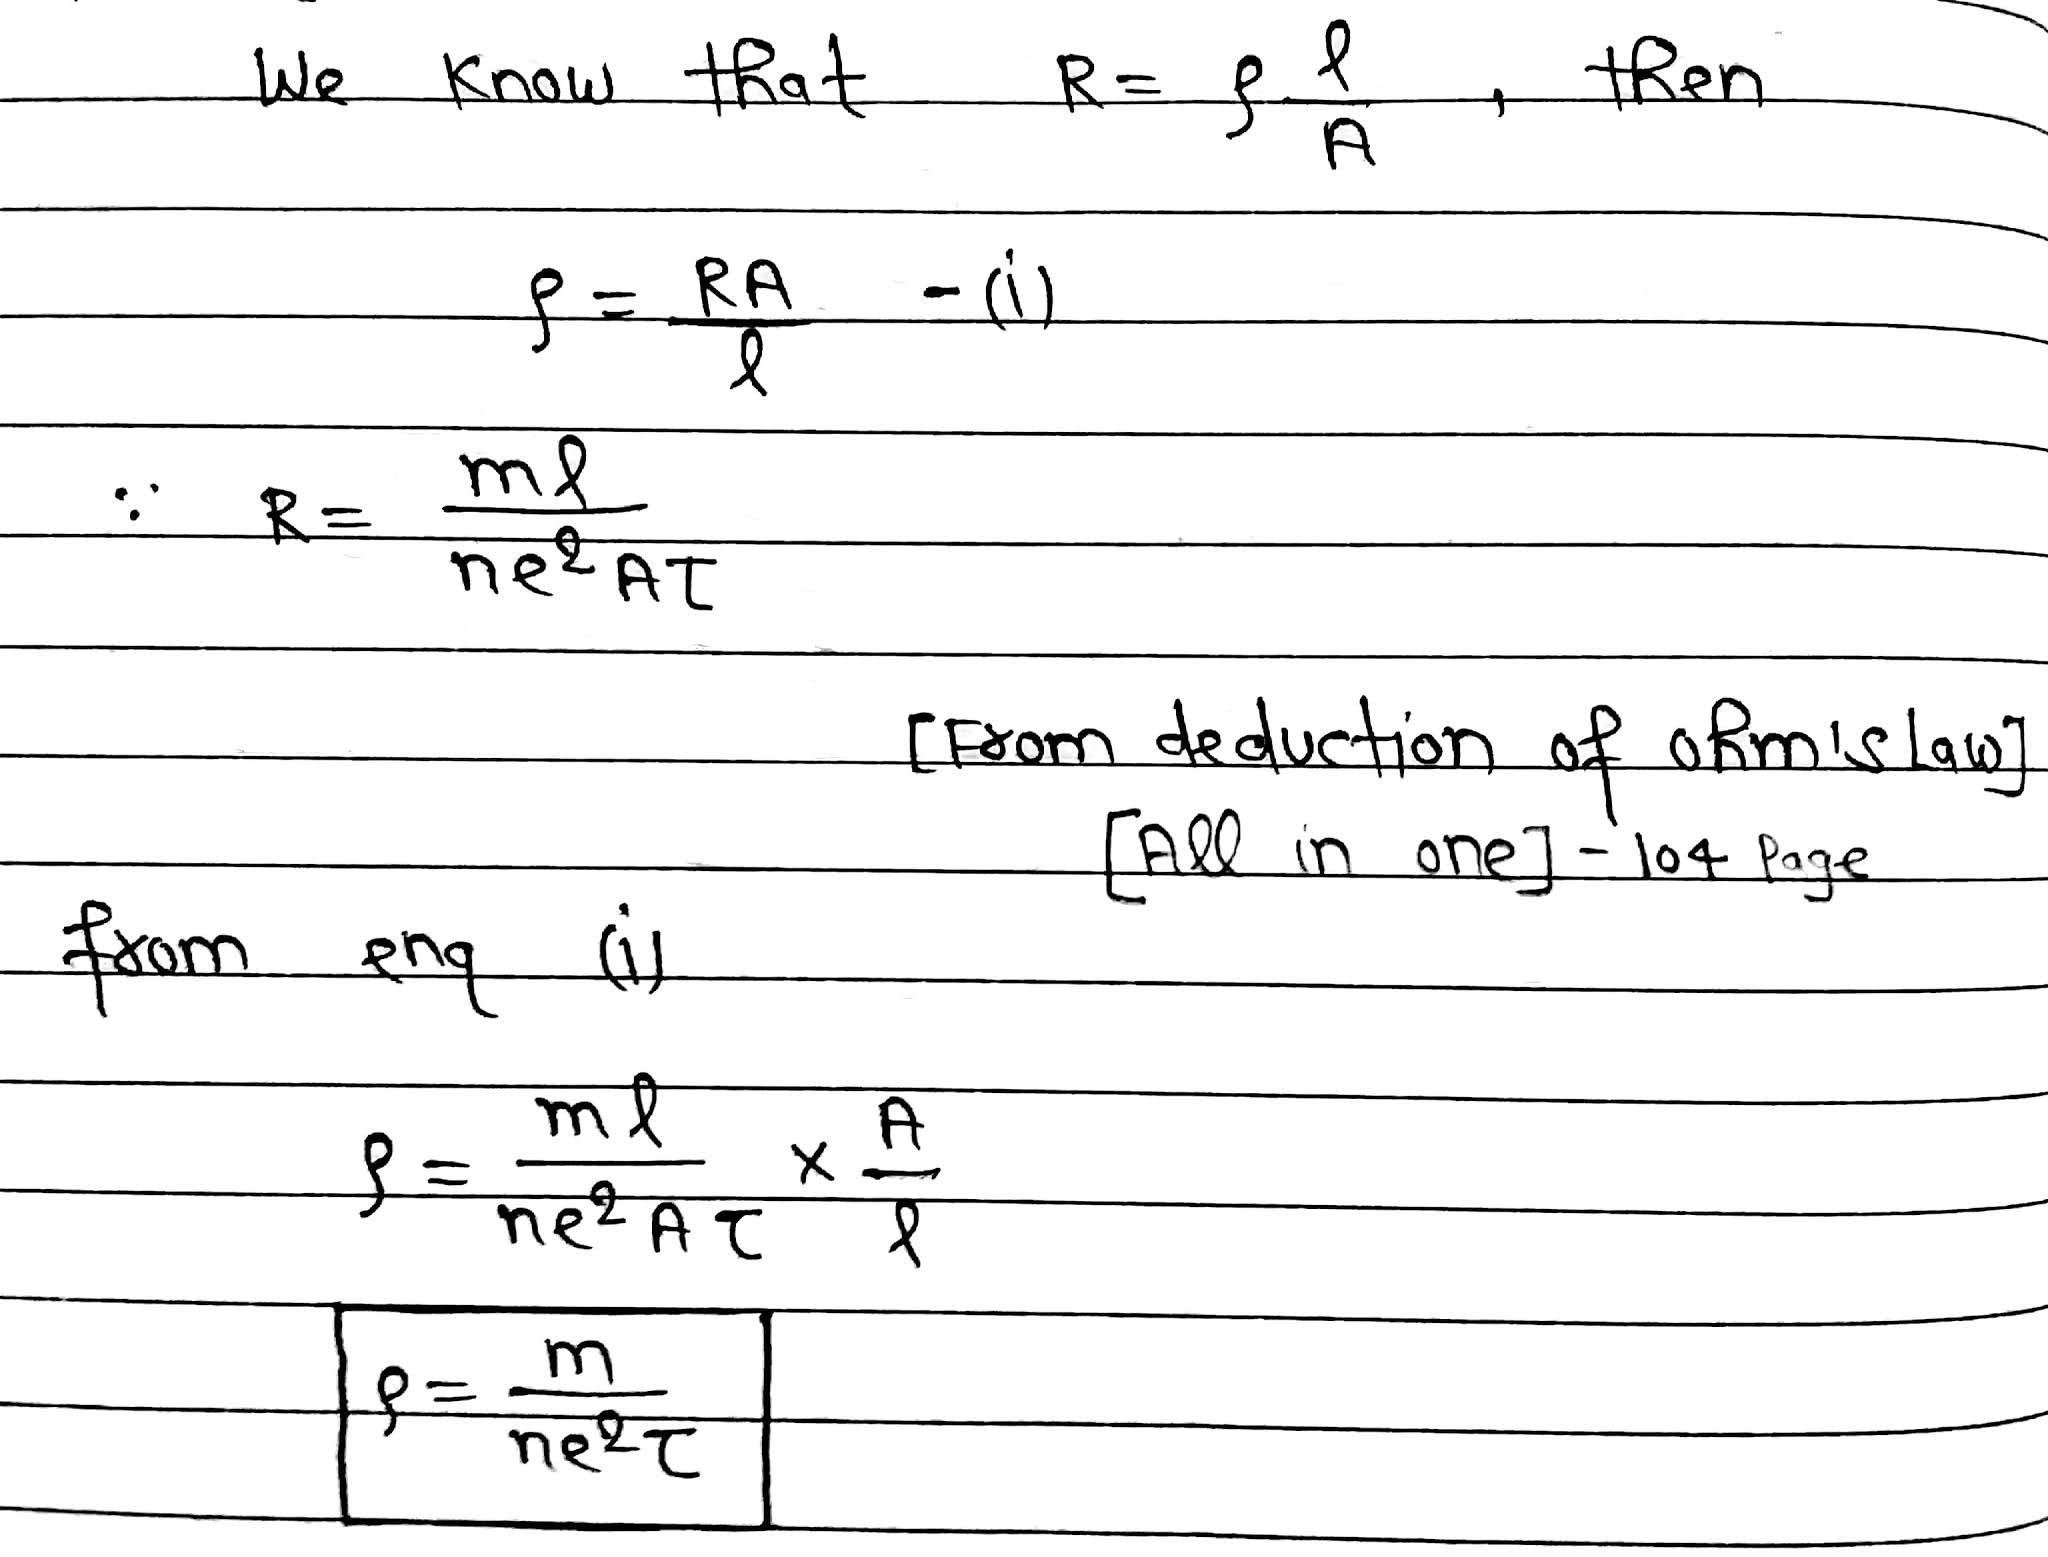 We know that R = ρ l/A , then
ρ = RA/l - (i)
∵ R = ml/ne²Aτ
[From deduction of ohm's law]
[All in one] - 104 Page
from enq (i)
ρ = ml/ne²Aτ × A/l
ρ = m/ne²τ